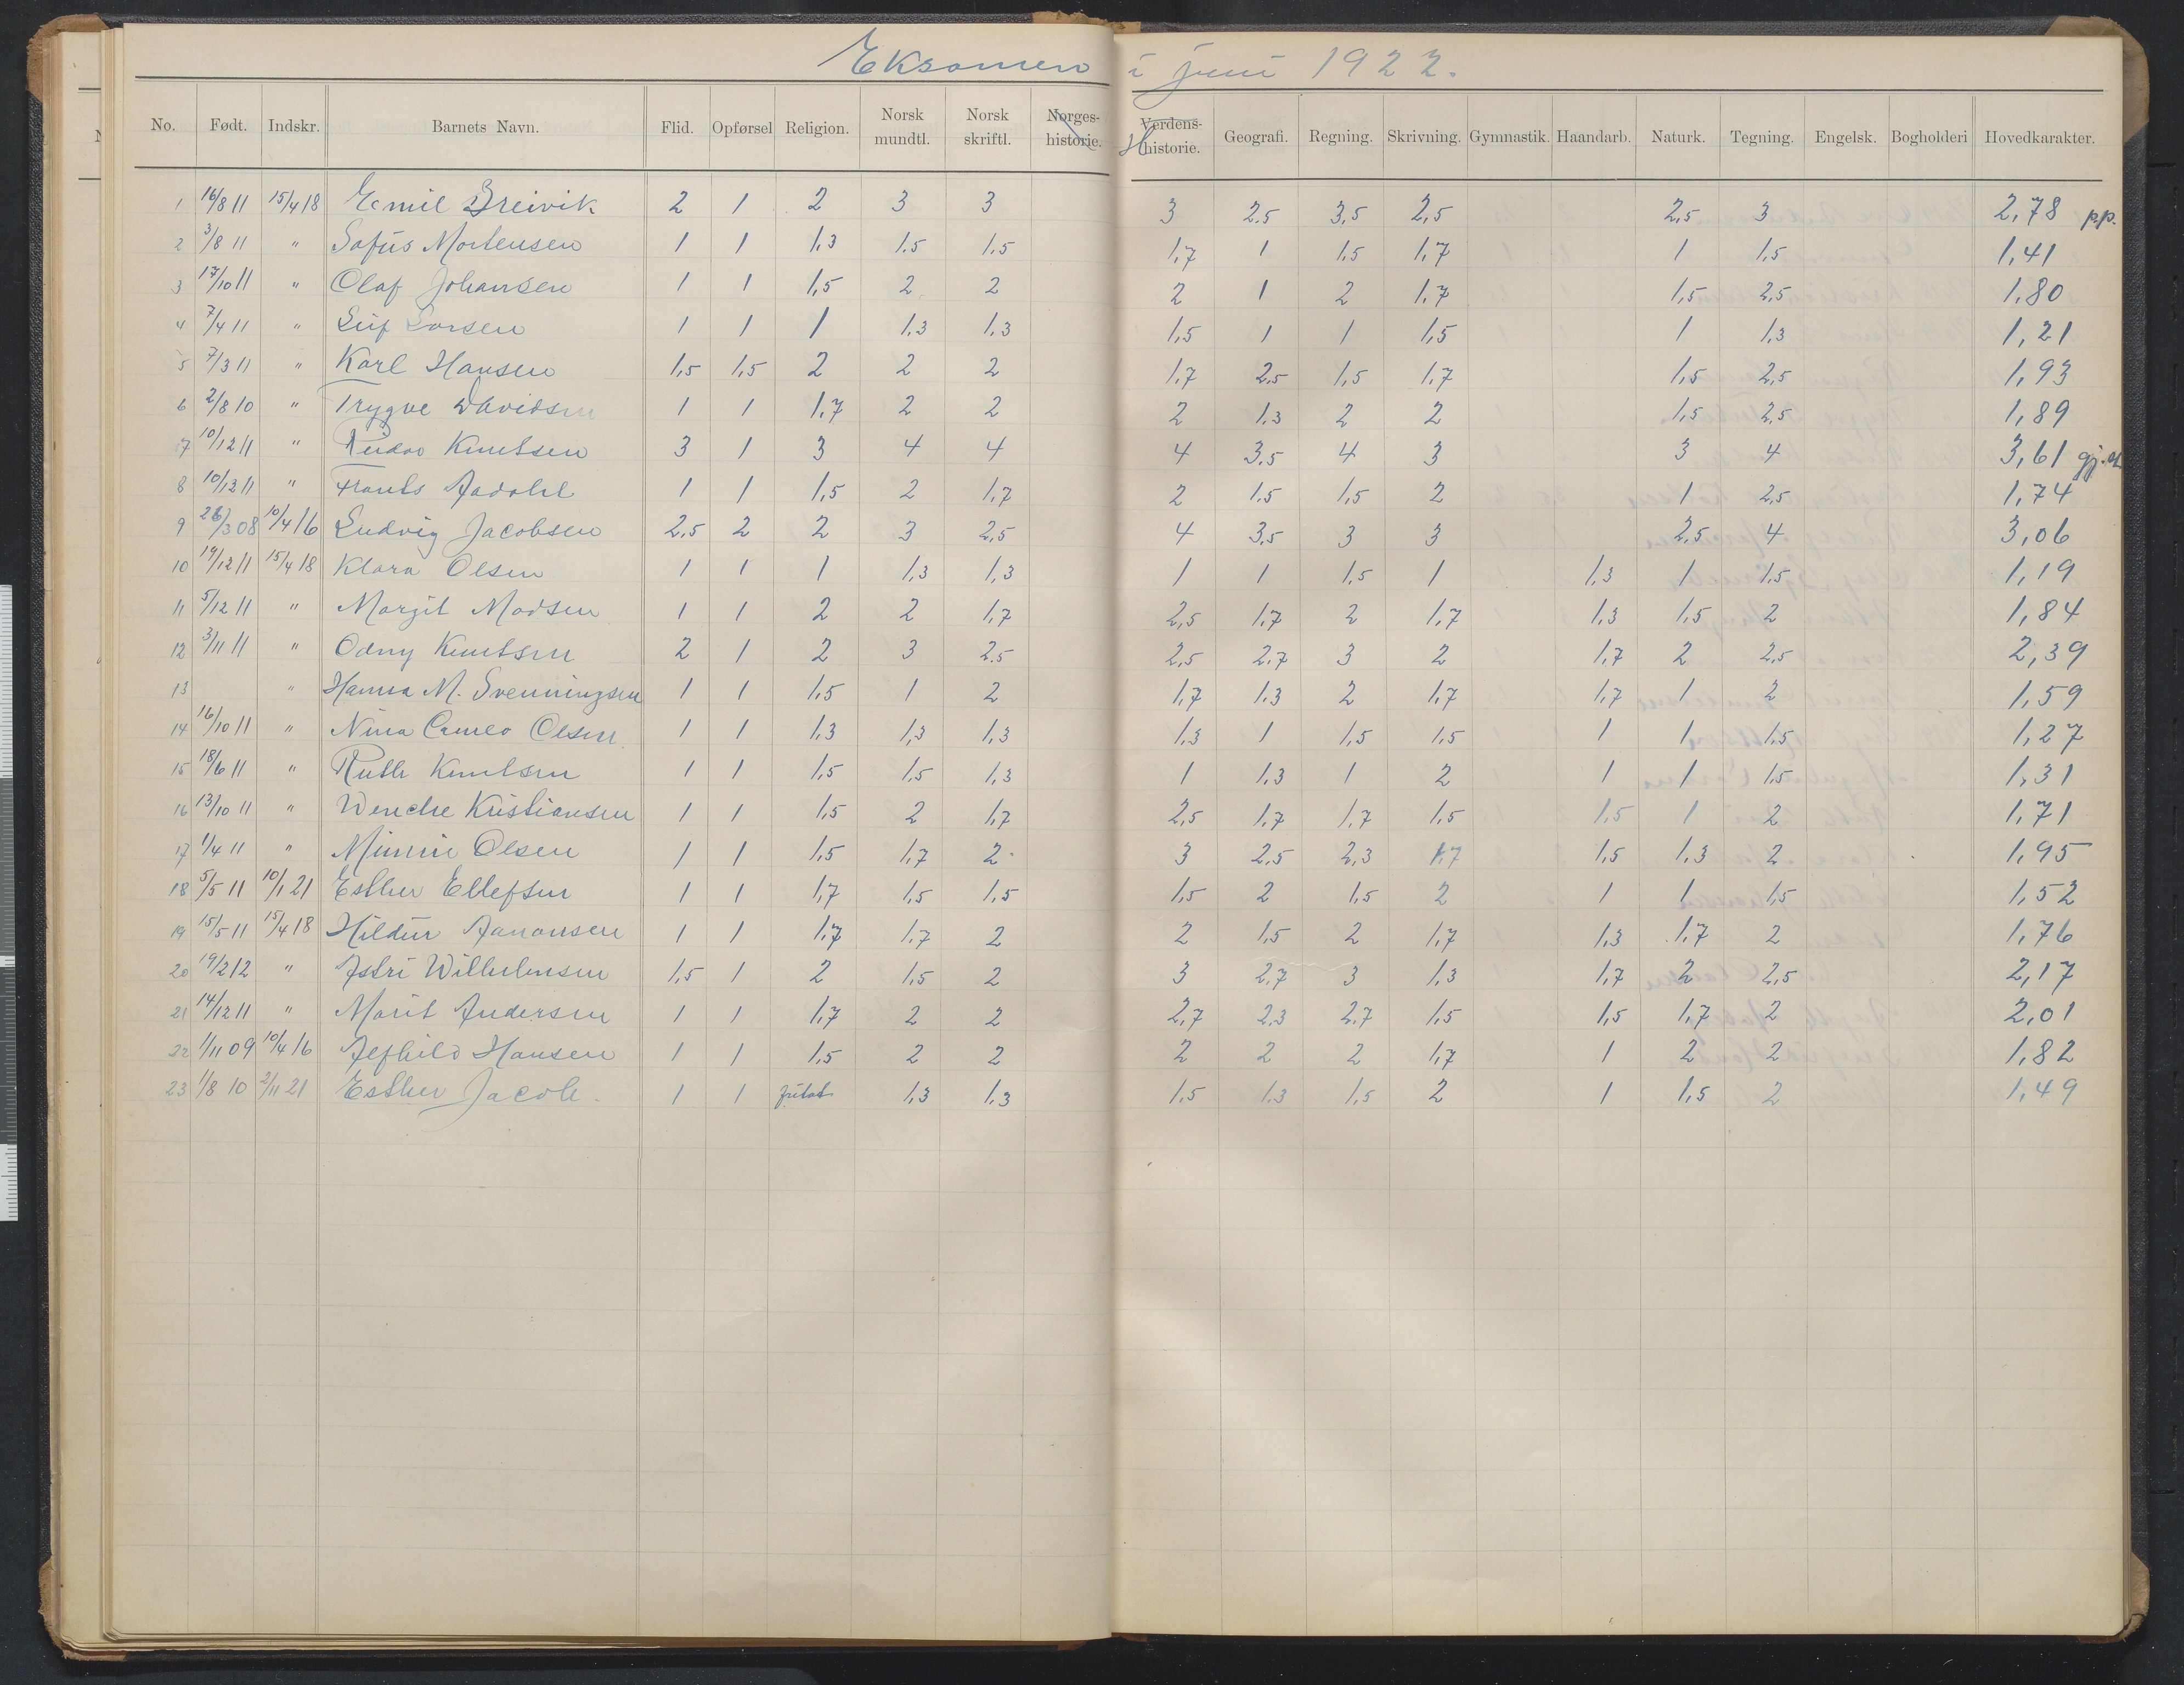 Eksamen i juni 1922.
No. Født. Indskr. Barnets Navn. Flid. Opførsel Religion. Norsk mundtl. Norsk skriftl. Norges-historie. Verdens-historie. Geografi. Regning. Skrivning. Gymnastik. Haandarb. Naturk. Tegning. Engelsk. Bogholderi Hovedkarakter.
1 16/8 11 15/4 18 Emil Breivik 2 1 2 3 3 3 2.5 3,5 2,5 2,5 3 2,78 p.p.
2 3/8 11 " Sofus Mortensen 1 1 1,3 1.5 1,5 1,7 1 1,5 1,7 1 1,5 1,41
3 17/10 11 " Olaf Johansen 1 1 1,5 2 2 2 1 2 1,7 1,5 2,5 1,80
4 7/4 11 " Leif Larsen 1 1 1 1,3 1,3 1,5 1 1 1,5 1 1,3 1,21
5 7/3 11 " Karl Hansen 1,5 1,5 2 2 2 1,7 2,5 1,5 1,7 1,5 2,5 1,93
6 2/8 10 " Trygve Davidsen 1 1 1,7 2 2 2 1.3 2 2 1,5 2,5 1,89
7 10/12 11 " Knutsen 3 1 3 4 4 4 3.5 4 3 3 4 3,61
8 10/12 11 " Frants 1 1 1,5 2 1,7 2 1.5 1,5 2 1 2,5 1,74
9 26/3 08 10/4 16 Ludvig Jacobsen 2,5 2 2 3 2,5 4 3,5 3 3 2,5 4 3,06
10 14/12 11 15/4 18 Klara Olsen 1 1 1 1,3 1,3 1 1 1,5 1 1,3 1 1,5 1,19
11 5/12 11 " Margit Madsen 1 1 2 2 1,7 2,5 1,7 2 1,7 1,3 1,5 2 1,84
12 3/11 11 " Odny Knutsen 2 1 2 3 2.5 2,5 2,7 3 2 1,7 2 2,5 2,39
13 " Hanna M. Svenningsen 1 1 1,5 1 2 1,7 1.3 2 1,7 1,7 1 2 1,59
14 16/10 11 " Nina Cameo Olsen 1 1 1,3 1,3 1,3 1,3 1 1,5 1,5 1 1 1,5 1,27
15 18/6 11 " Ruth Knutsen 1 1 1,5 1,5 1,3 1 1.3 1 2 1 1 1,5 1,31
16 13/10 11 " Wenche Kristiansen 1 1 1,5 2 1,7 2,5 1,7 1,7 1,5 1,5 1 2 1,71
17 1/4 11 " Minnie Olsen 1 1 1,5 1,7 2 3 2,5 2,3 1,7 1,5 1,3 2 1,95
18 5/5 11 10/1 21 Esther Ellefsen 1 1 1,7 1,5 1,5 1,5 2 1,5 2 1 1 1,5 1,52
19 15/5 11 15/4 18 Hildur Aanonsen 1 1 1,7 1,7 2 2 1,5 2 1,7 1,3 1,7 2 1,76
20 19/2 12 " Astri Wilhelmsen 1,5 1 2 1,5 2 3 2,7 3 1,3 1,7 2 2,5 2,17
21 14/12 11 " Marit Andersen 1 1 1,7 2 2 2,7 2,3 2,7 1,5 1,5 1,7 2 2,01
22 1/11 09 10/4 16 Alfhild Hansen 1 1 1,5 2 2 2 2 2 1,7 1 2 2 1,82
23 1/8 10 2/11 21 Esther Jacob. 1 1 fritat 1,3 1,3 1,5 1,3 1,5 2 1 1,5 2 1,49